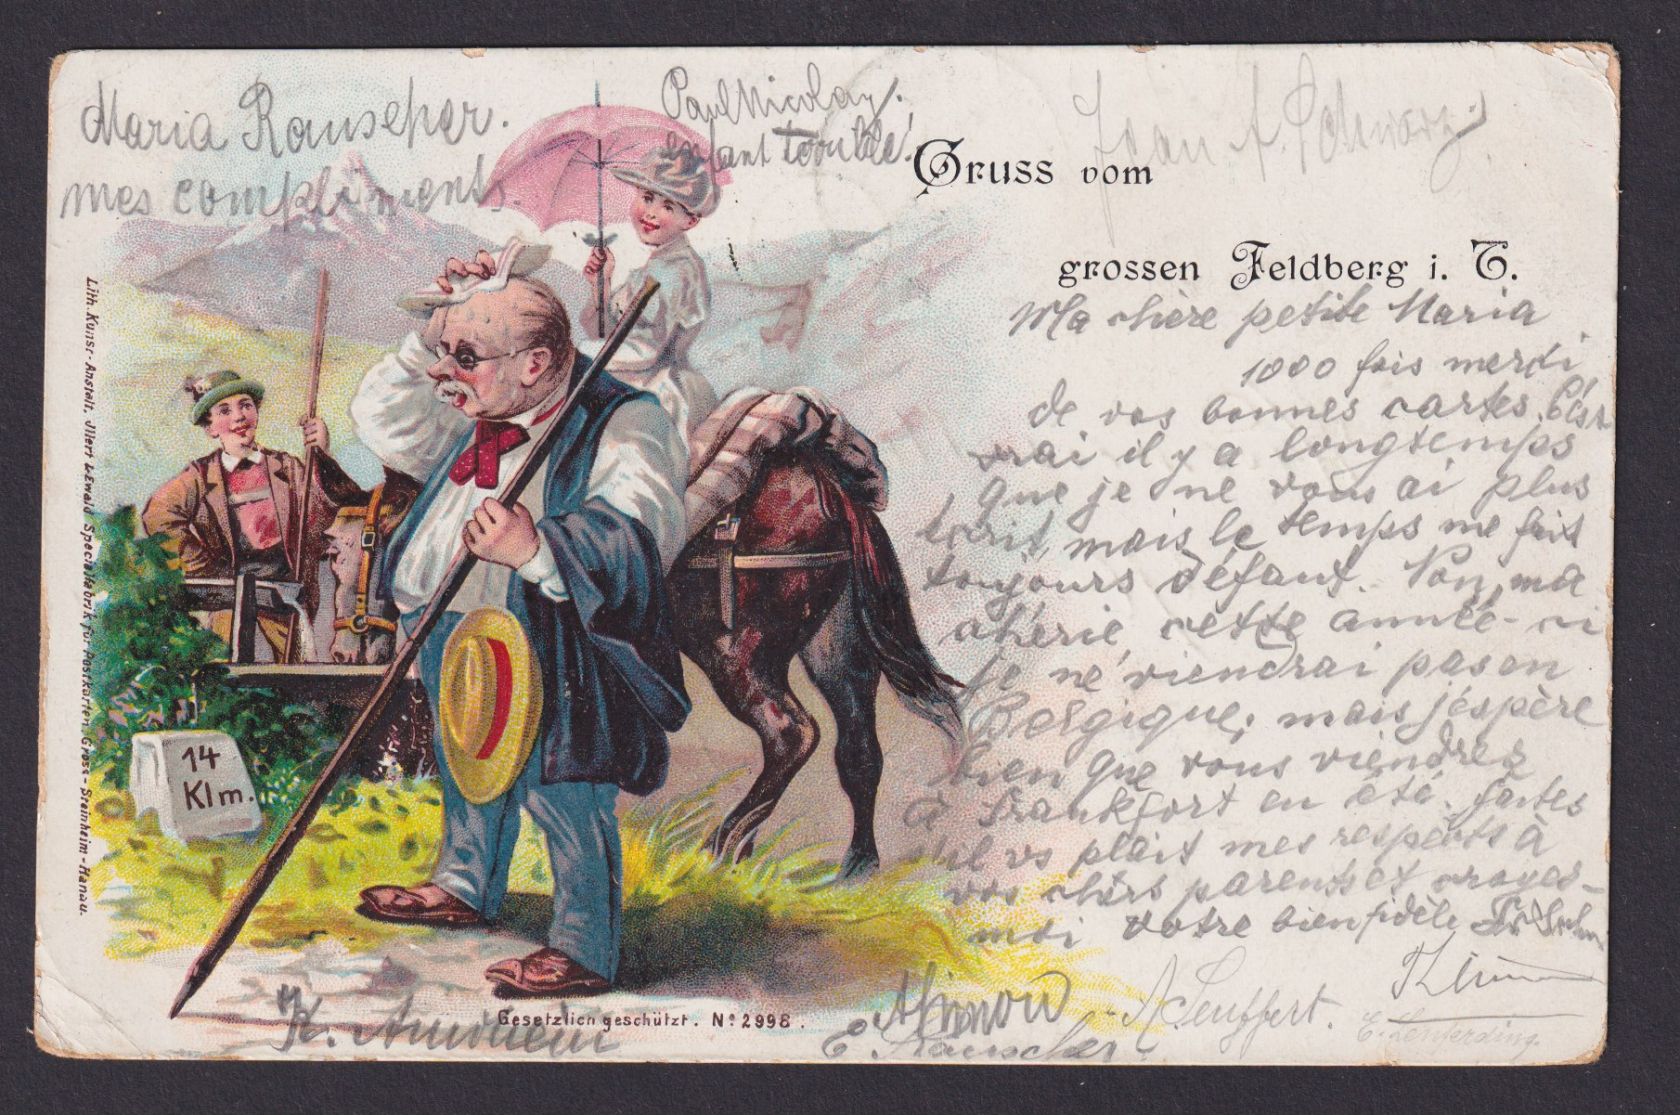 Maria Rauscher.
mes compliments.
Paul Nicolay.
enfant
Gruss vom
grossen Feldberg i. T.
Jean A. Schwarz.
Ma chère petite Maria
1000 fois merci
de vos bonnes cartes. C'est
vrai il y a longtemps
que je ne vous ai plus
écrit, mais le temps me fait
toujours défaut. Non, ma
chérie, cette année-ci
je ne viendrai pas en
Belgique, mais j'espère
bien que vous viendrez
à Frankfort en été. faites
s'il vs plait mes respects à
vos chèrs parents et croyez-
moi votre bien fidèle
Lith. Kunst-Anstalt, Illert & Ewald Specialfabrik für Postkarten, Gross-Steinheim-Hanau.
14
Klm.
Gesetzlich geschützt. No 2998.
E. Rauscher.
A. Seuffert.